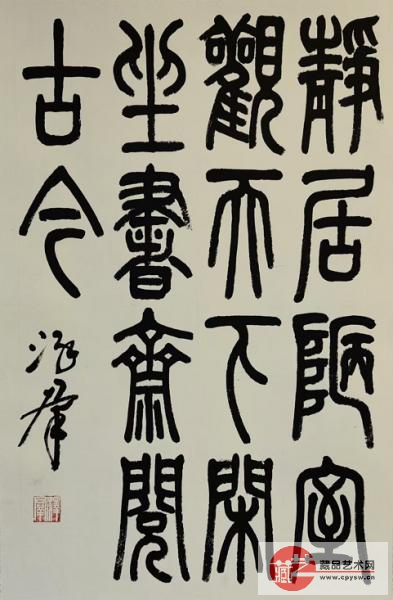 靜居陋室
觀天下閑
坐書齋閱
古今
藏品艺术网
www.cpysw.cn